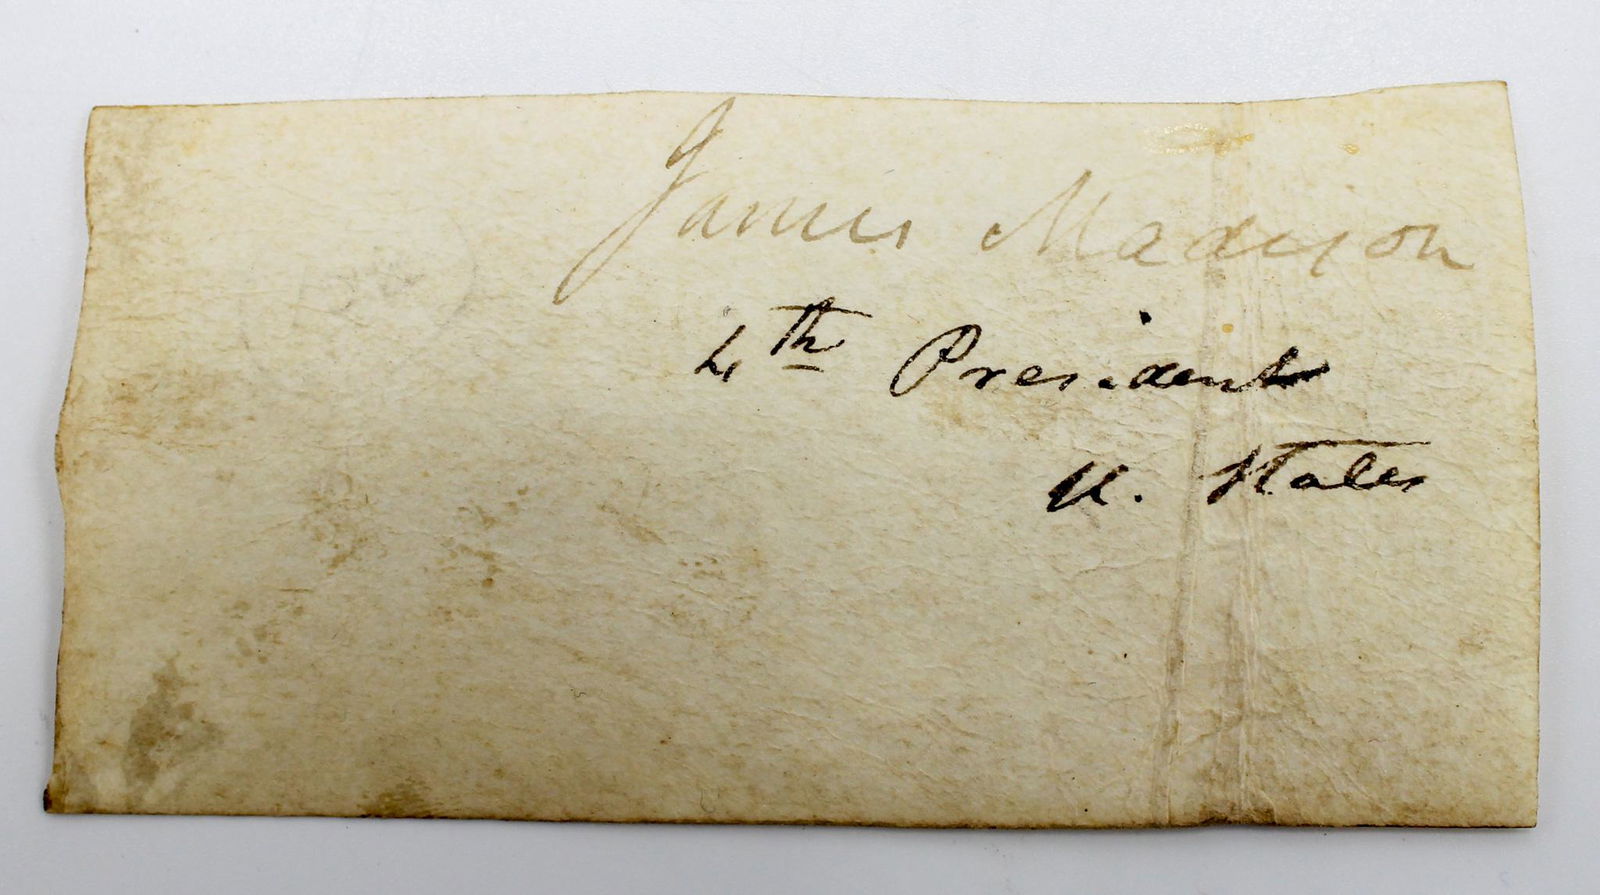 James Madison
4th President
U. States